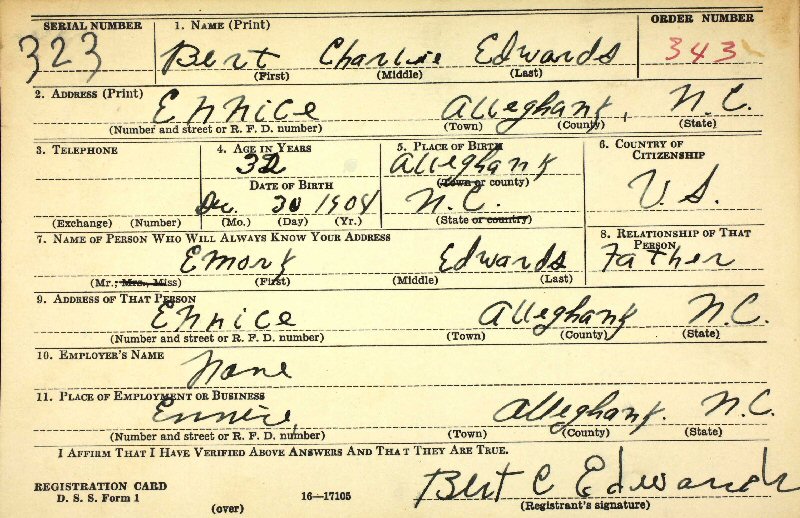 SERIAL NUMBER 1. NAME (Print) ORDER NUMBER
323 Bert Charlie Edwards 343
(First) (Middle) (Last)
2. ADDRESS (Print)
Ennice Alleghany, N.C.
(Number and street or R. F. D. number) (Town) (County) (State)
3. TELEPHONE 4. AGE IN YEARS 5. PLACE OF BIRTH 6. COUNTRY OF
CITIZENSHIP
32 Alleghany
DATE OF BIRTH (Town or county) U.S.
Dec. 30 1904 N.C.
(Exchange) (Number) (Mo.) (Day) (Yr.) (State or country)
7. NAME OF PERSON WHO WILL ALWAYS KNOW YOUR ADDRESS 8. RELATIONSHIP OF THAT
PERSON
Emory Edwards Father
(Mr., Mrs., Miss) (First) (Middle) (Last)
9. ADDRESS OF THAT PERSON
Ennice Alleghany N.C.
(Number and street or R. F. D. number) (Town) (County) (State)
10. EMPLOYER'S NAME
None
11. PLACE OF EMPLOYMENT OR BUSINESS
Ennice, Alleghany. N.C.
(Number and street or R. F. D. number) (Town) (County) (State)
I AFFIRM THAT I HAVE VERIFIED ABOVE ANSWERS AND THAT THEY ARE TRUE.
REGISTRATION CARD Bert C Edwards
D. S. S. Form 1 (over) 16—17105 (Registrant's signature)